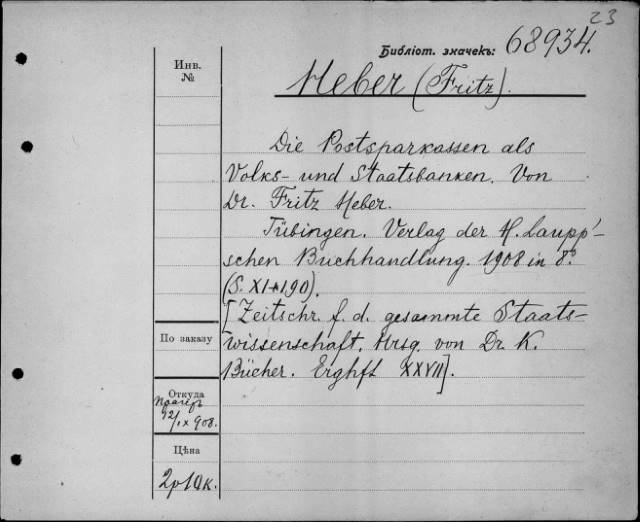 23
Библіот. значекъ: 68934.
Инв.
№
Heber (Fritz).
Die Postsparkassen als
Volks- und Staatsbanken. Von
Dr. Fritz Heber.
Tübingen. Verlag der H. Laupp'-
schen Buchhandlung. 1908 in 8º.
(S. XI+190).
[Zeitschr. f. d. gesammte Staats-
wissenschaft. Hrsg. von Dr. K.
Bücher. Erghft XXVII].
По заказу
Откуда
12/IX 908.
Цѣна
2р10к.